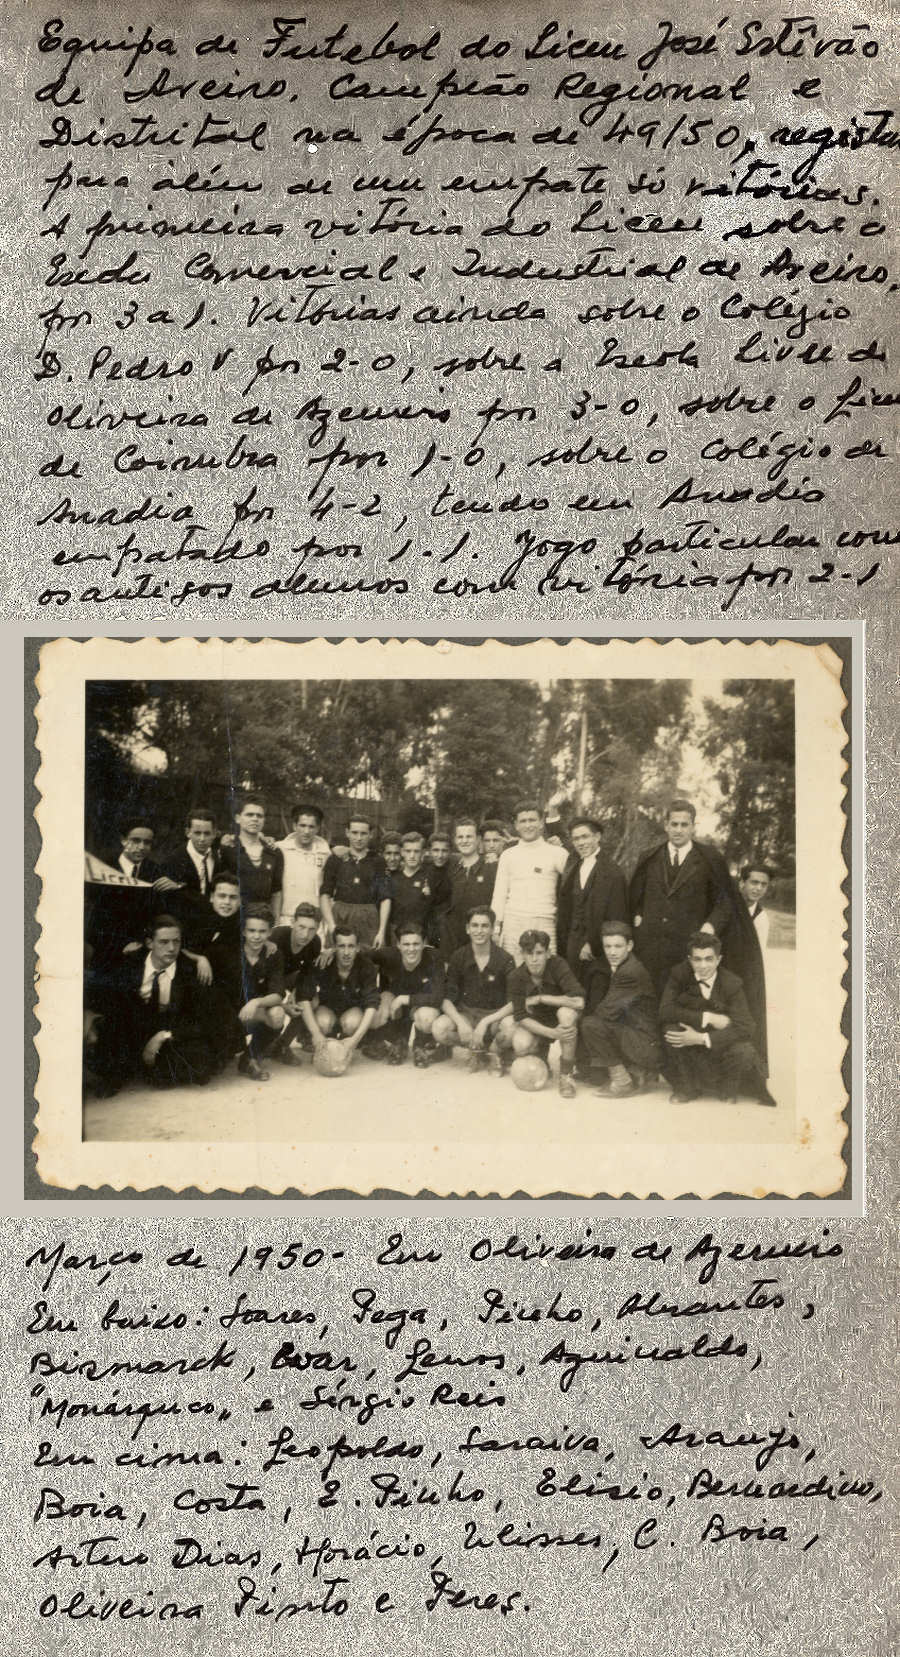 Equipa de Futebol do Liceu José Estêvão
de Aveiro. Campeão Regional e
Distrital na época de 49/50, registou
para além de um empate só vitórias.
A primeira vitória do Liceu sobre a
Escola Comercial e Industrial de Aveiro,
por 3 a 1. Vitórias ainda sobre o Colégio
D. Pedro V por 2-0, sobre a Escola Livre de
Oliveira de Azemeis por 3-0, sobre o Liceu
de Coimbra por 1-0, sobre o Colégio de
Anadia por 4-2, tendo em Anadia
empatado por 1-1. Jogo particular com
os antigos alunos com vitória por 2-1
Liceu
Março de 1950- Em Oliveira de Azemeis
Em baixo: Soares, Pega, Pinho, Abrantes,
Bismarck, Ewar, Lemos, Aguinaldo,
"Monárquico" e Sérgio Reis
Em cima: Leopoldo, Saraiva, Araujo,
Boia, Costa, E. Pinho, Elisio, Bernardino,
Artur Dias, Horácio, Ulisses, C. Boia,
Oliveira Pinto e Peres.